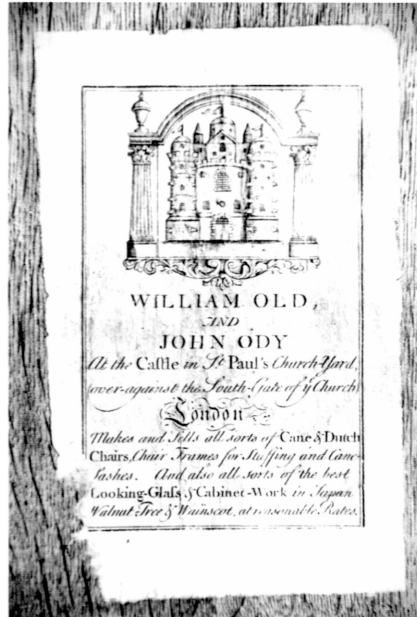 WILLIAM OLD,
AND
JOHN ODY
At the Caſtle in St Paul's Church-Yard,
(over-against the South-Gate of yͤ Church)
London
Makes and Sells all sorts of Cane & Dutch
Chairs, Chair Frames for Stuffing and Cane-
Sashes. And also all sorts of the best
Looking-Glaſs & Cabinet-Work in Japan
Walnut-Tree & Wainscot, at reasonable Rates.